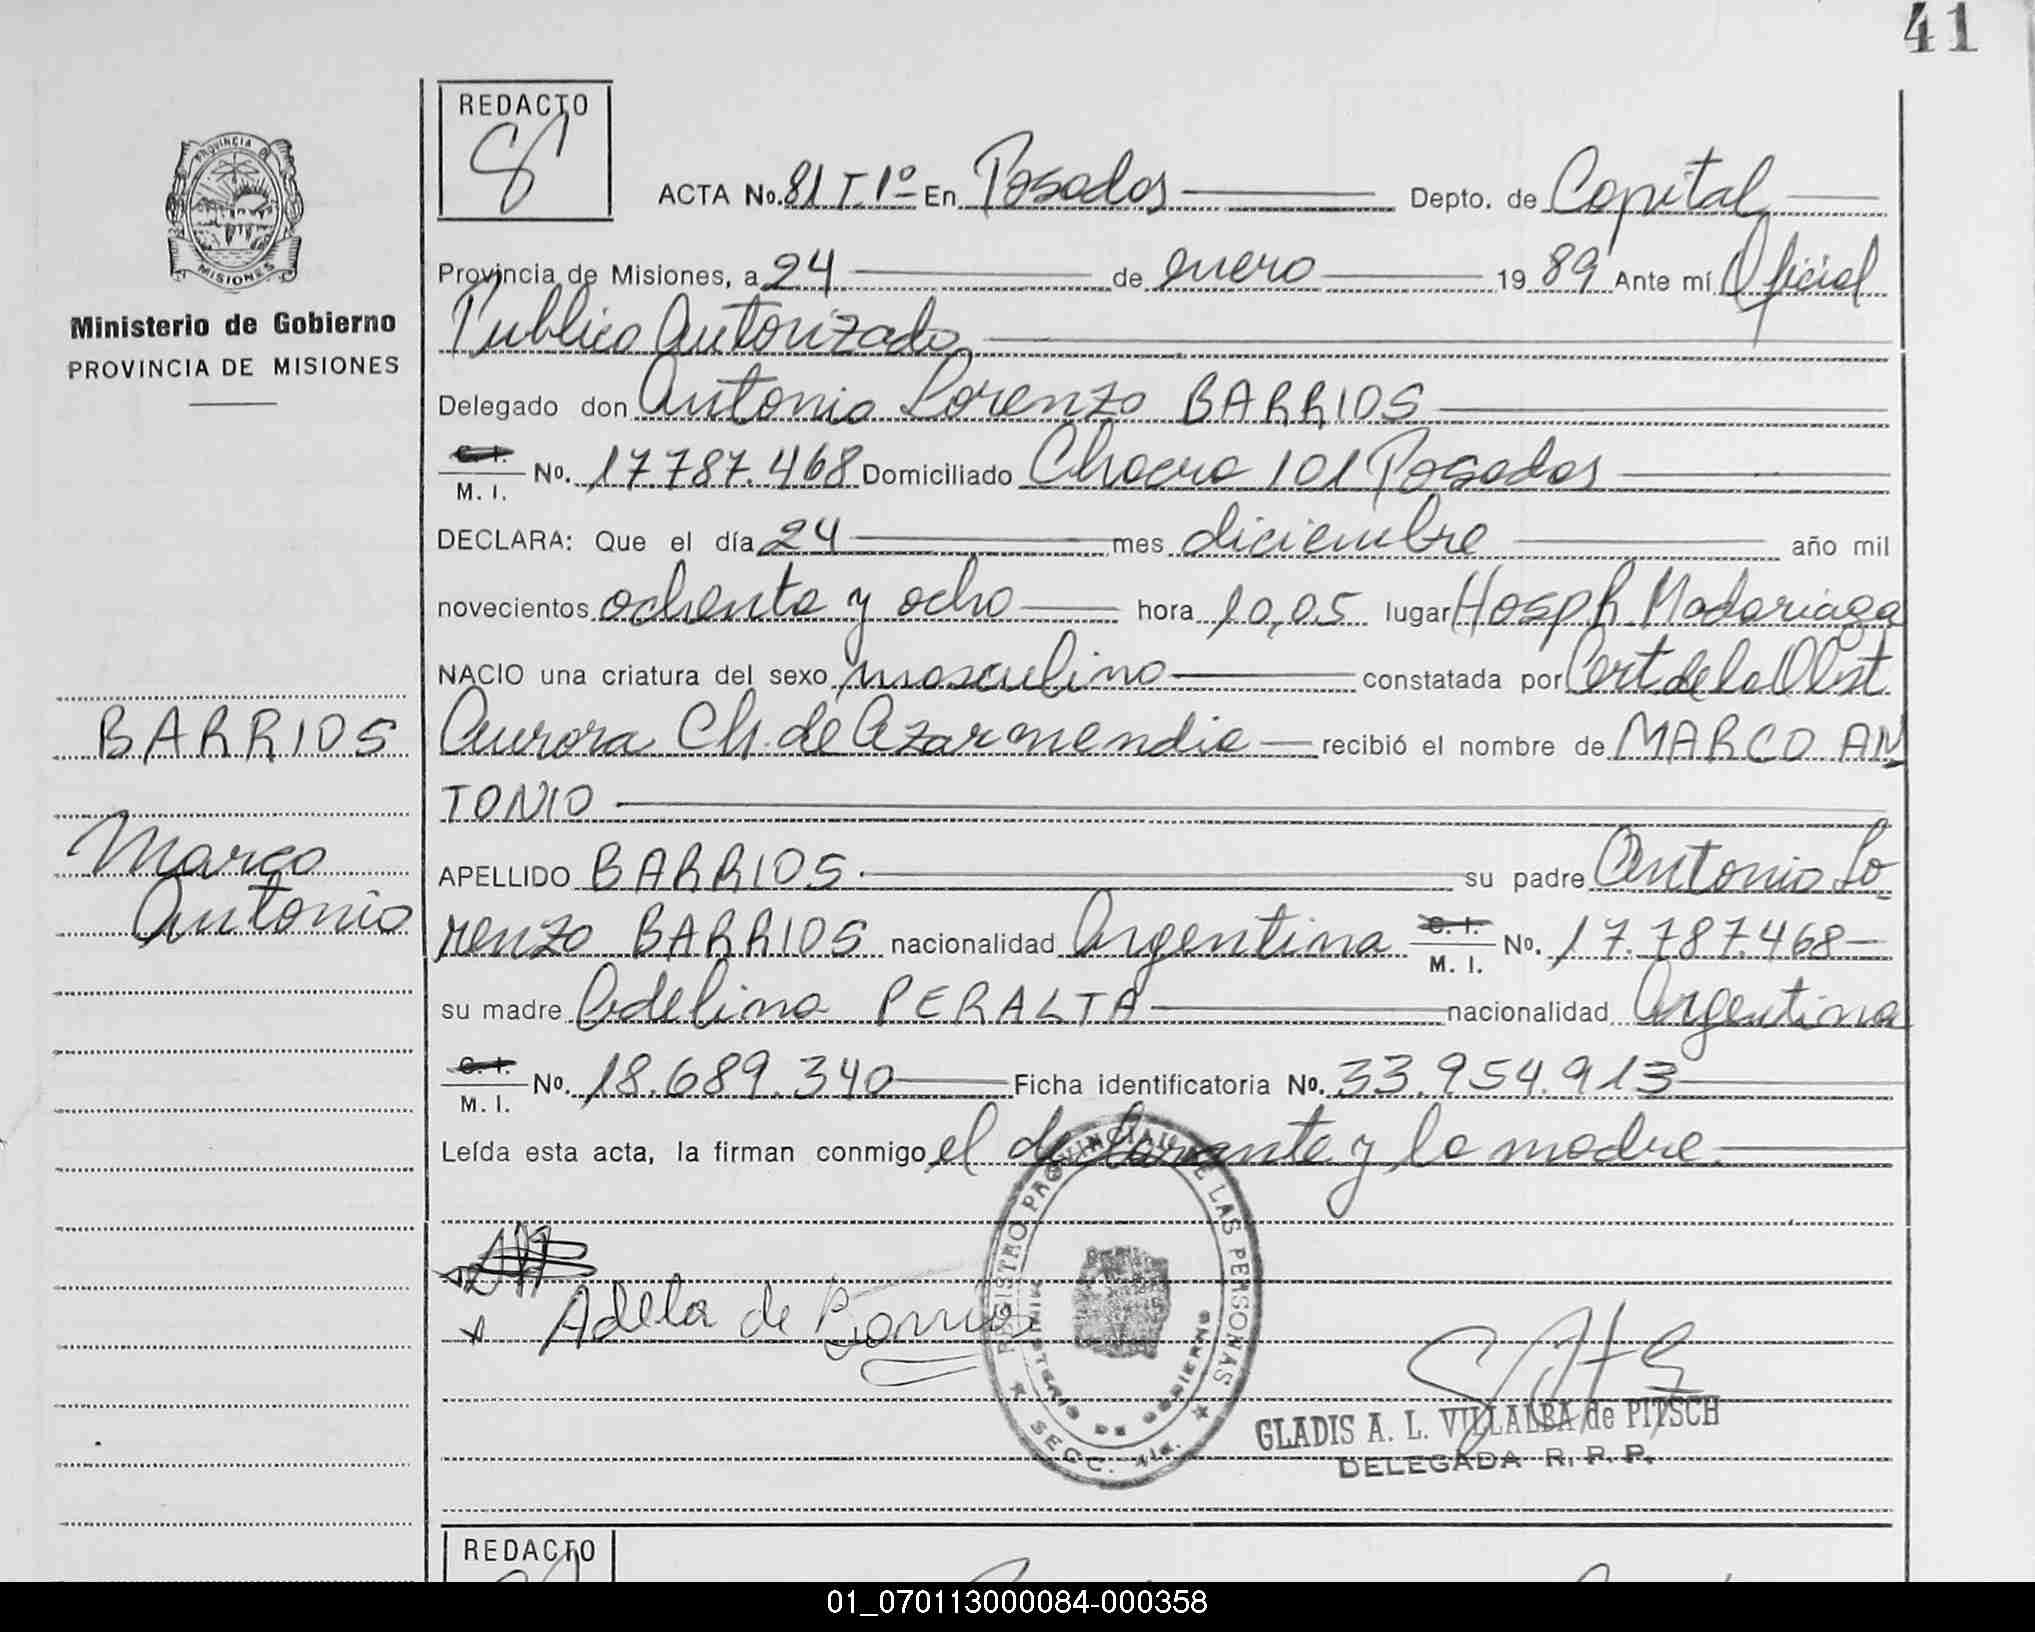 41
REDACTO
ACTA No. 81 T. 1º En Posadas Depto. de Capital
PROVINCIA DE
MISIONES
Provincia de Misiones, a 24 de enero 19 89 Ante mí Oficial
Ministerio de Gobierno
PROVINCIA DE MISIONES
Publico Autorizado
Delegado don Antonio Lorenzo BARRIOS
C. I.
M. I. No. 17.787.468 Domiciliado Chacra 101 Posadas
DECLARA: Que el día 24 mes diciembre año mil
novecientos ochenta y ocho hora 10,05 lugar Hosp R. Madariaga
NACIO una criatura del sexo masculino constatada por Cert de la Obst
BARRIOS
Aurora Ch. de Azarmendia recibió el nombre de MARCO AN
TONIO
Marco
Antonio
APELLIDO BARRIOS su padre Antonio Lo
renzo BARRIOS nacionalidad Argentina C. I. M. I. No. 17.787.468
su madre Adelina PERALTA nacionalidad Argentina
C. I.
M. I. No. 18.689.340 Ficha identificatoria No. 33.954.913
Leída esta acta, la firman conmigo el declarante y la madre.
Adela de Barrios
REGISTRO PROVINCIAL DE LAS PERSONAS
MINISTERIO DE GOBIERNO
SECC.
GLADIS A. L. VILLALBA de PITSCH
DELEGADA R. P. P.
REDACTO
01_070113000084-000358